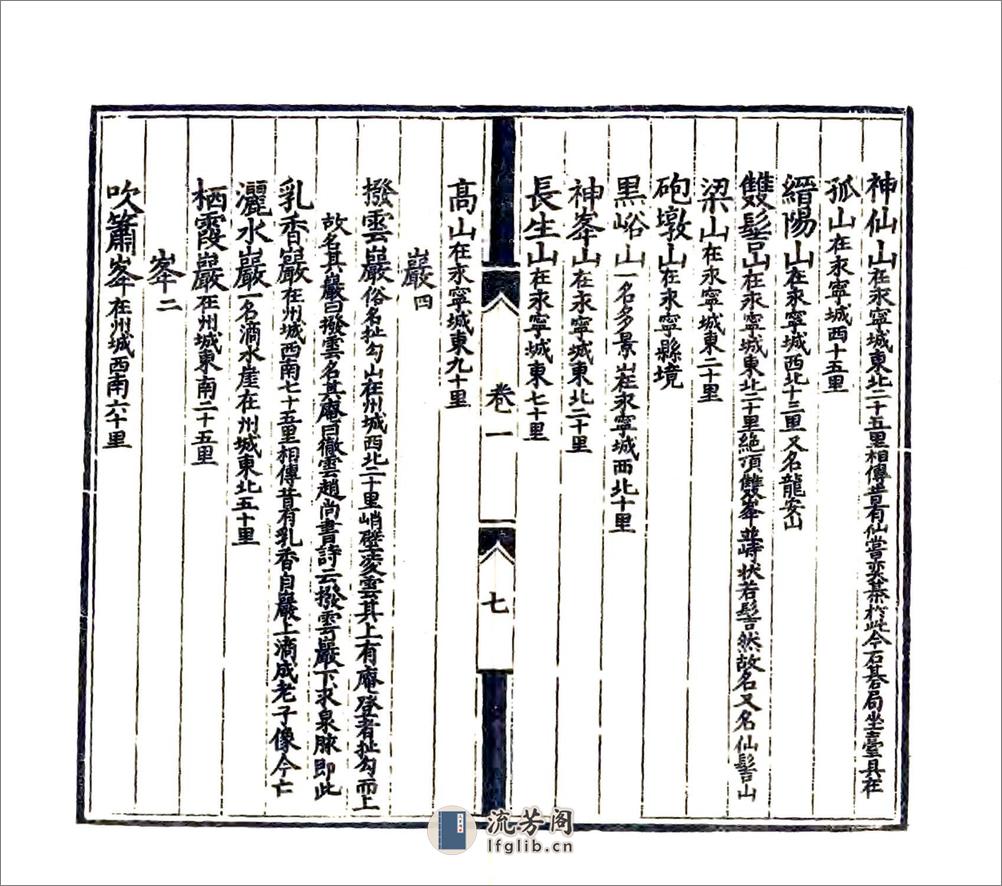 神仙山在永寧城東北二十五里相傳昔有仙嘗奕棊於此今石碁局坐臺具在
孤山在永寧城西十五里
縉陽山在永寧城西北十三里又名龍安山
雙髻山在永寧城東北二十里絶頂雙峯並峙狀若髻然故名又名仙髻山
梁山在永寧城東二十里
砲墩山在永寧縣境
黒峪山一名多景山在永寧城西北十里
神峯山在永寧城東北二十里
長生山在永寧城東七十里
卷一
七
髙山在永寧城東九十里
巖四
撥雲巖俗名扯勾山在州城西北二十里峭礎凌雲其上有庵登者扯勾而上
故名其巖曰撥雲名其庵曰徹雲趙尚書詩云撥雲巖下求泉脉即此
乳香巖在州城西南七十五里相傳昔有乳香自巖上滴成老子像今亡
灑水巖一名滴水崖在州城東北五十里
栖霞巖在州城東南二十五里
峯二
吹簫峯在州城西南六十里
流芳阁
lfglib.cn